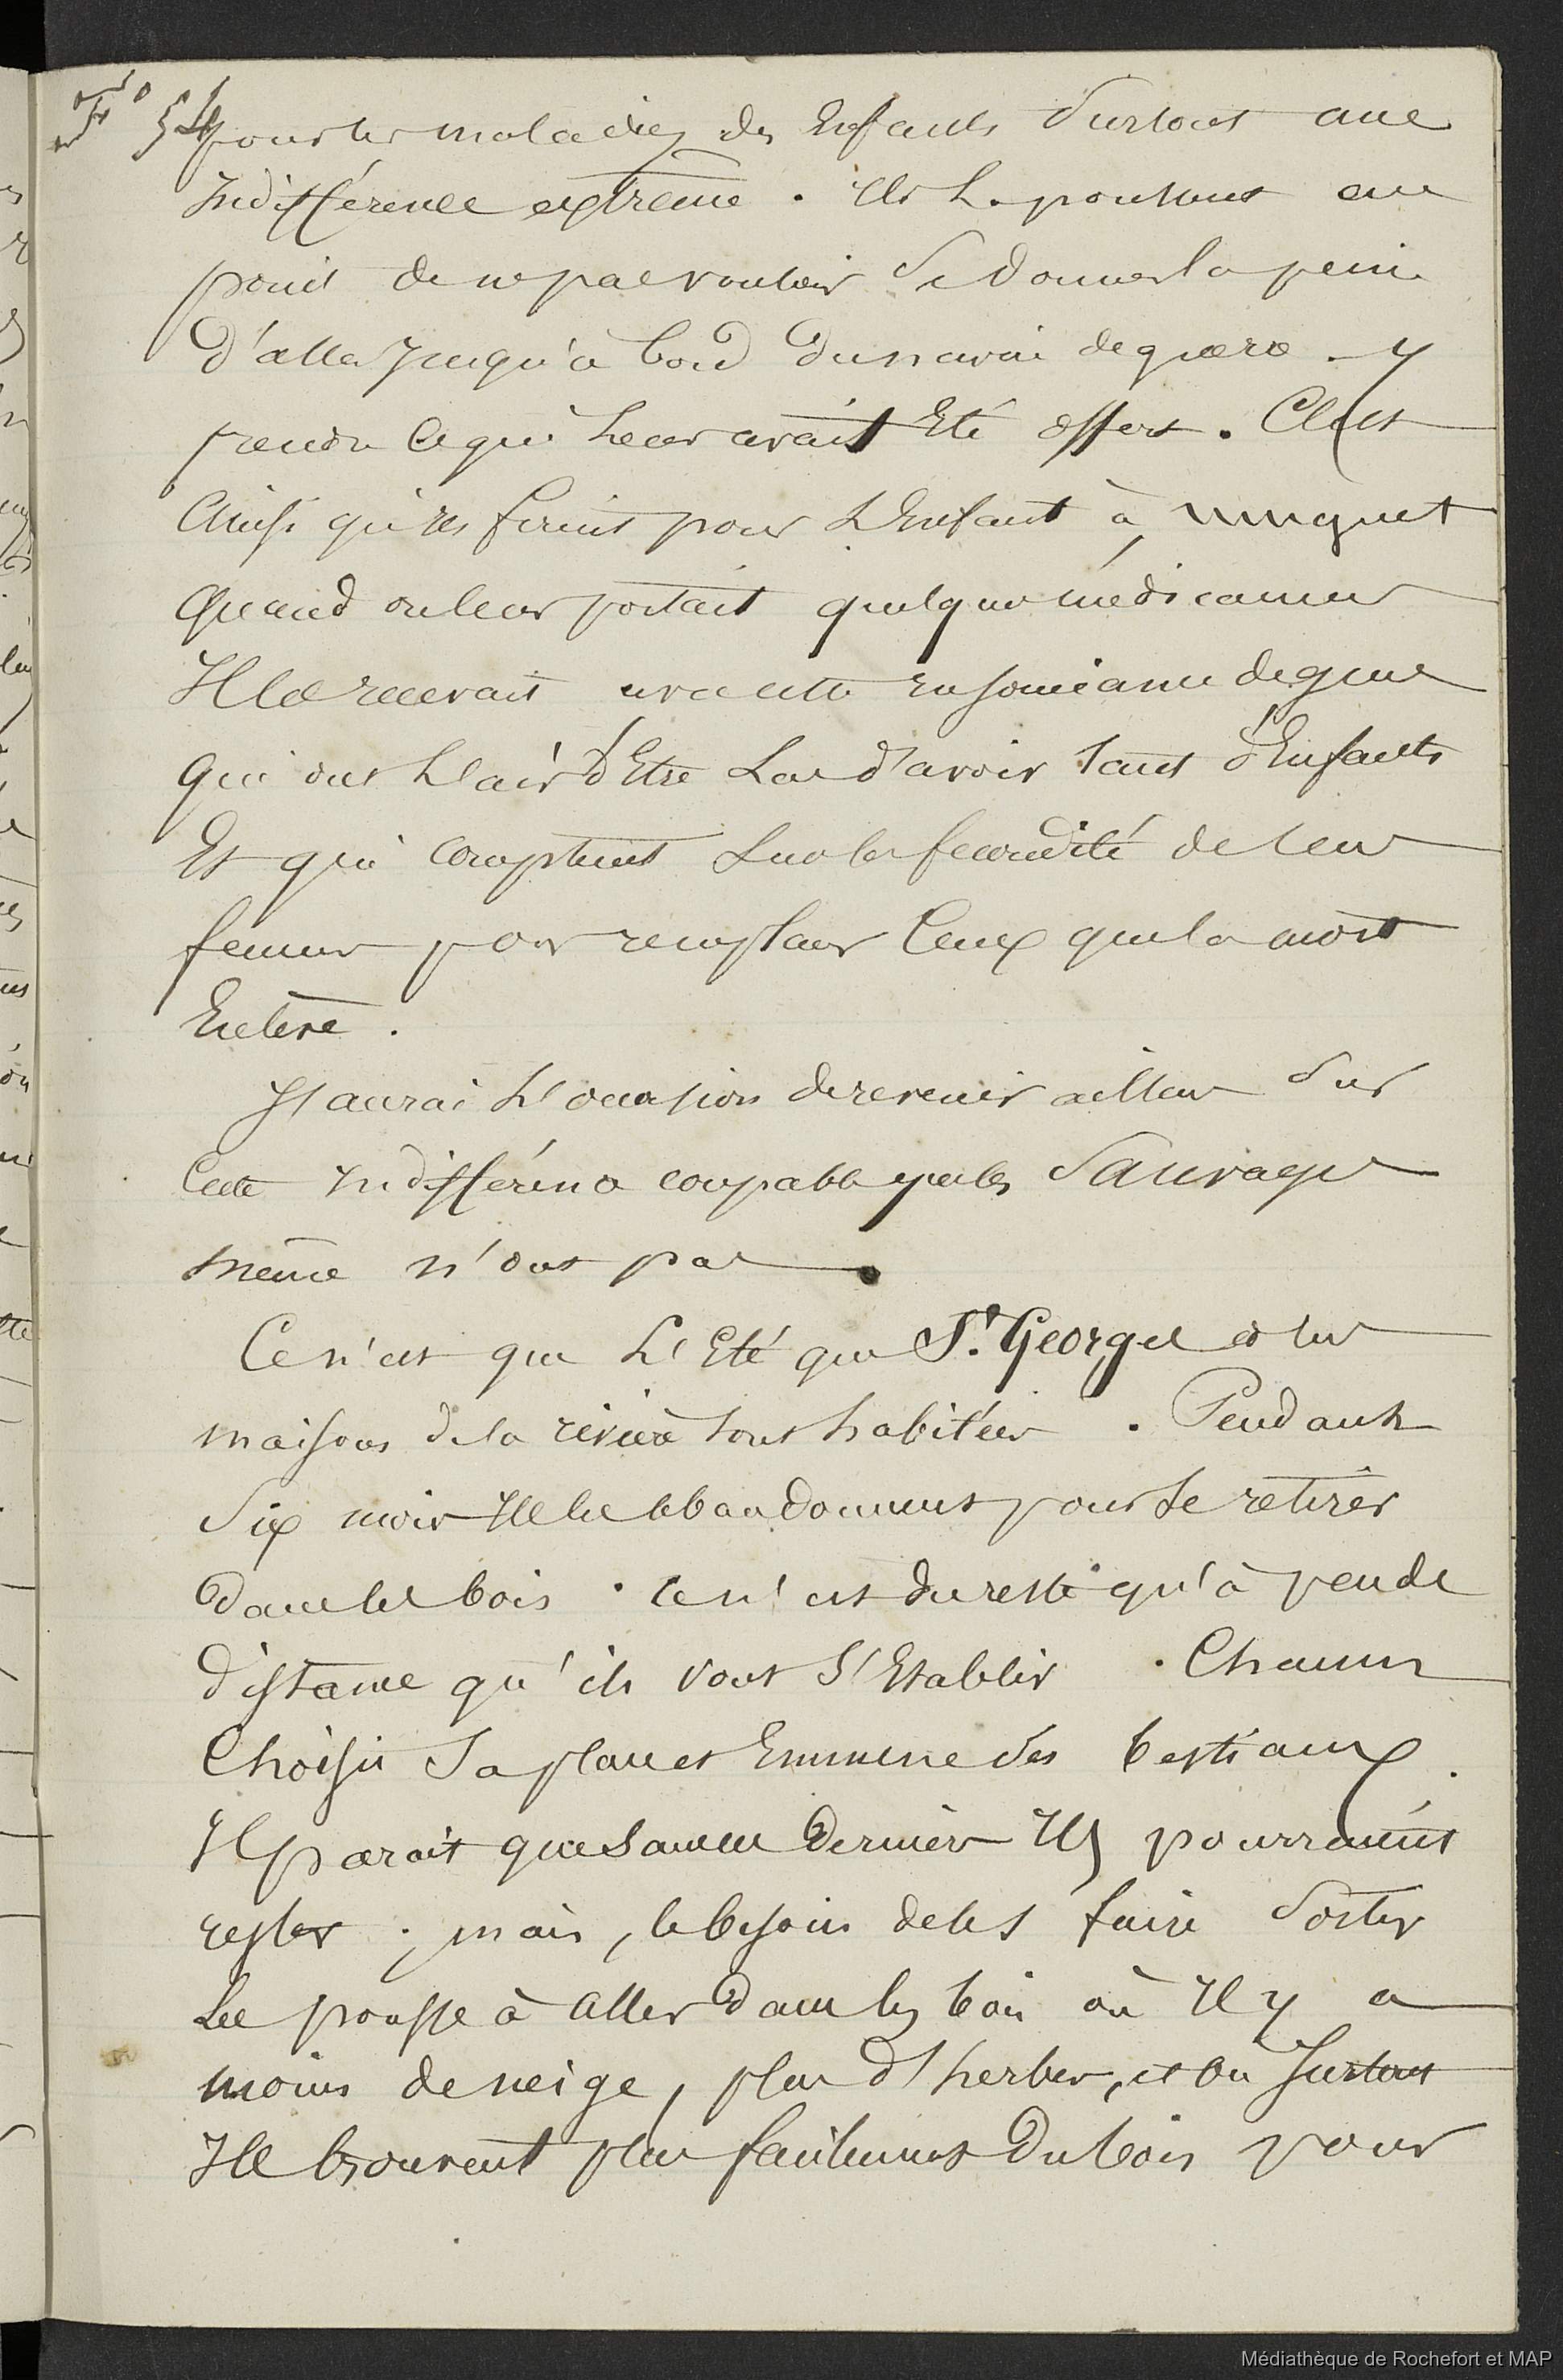 Fo 54
pour les maladies des Enfants Surtout une
Indifférence extrême . Ils La poussent au
point de ne pas vouloir Se donner la peine
d'aller Jusqu'à bord du navire de guerre y
prendre Ce qui Leur avait Eté offert . C'est
Ainsi qu'ils firent pour L'Enfant à muguet
Quand on leur portait quelques médicaments
Ils les recevait avec cette Ensouciance de gens
Qui ont L'air d'Etre Las d'avoir tant d'Enfants
Et qui Comptent Sur la fecondité de leur
femmes pour remplacer Ceux que la mort
Enlève .
J'aurai L'occasion de revenir ailleurs Sur
Cette Indifférence coupable que les Sauvages
même n'ont pas .
Ce n'est que L'Eté que St. Georges et les
maisons de la rivière Sont habitées . Pendant
Six mois Ils les abbandonnent pour Se retirer
Dans les bois . Ce n'est du reste qu'à peu de
Distance qu'ils vont S'Etablir . Chacun
Choisit Sa place et Emmene Ses bestiaux .
Il parait que Sans ces Derniers Ils pourraient
rester ; mais , le besoin de les faire Sortir
Les pousse à Aller Dans les bois où Il y a
moins de neige , plus d'herbes , et où Surtout
Ils trouvent plus facilement Du bois pour
Médiathèque de Rochefort et MAP